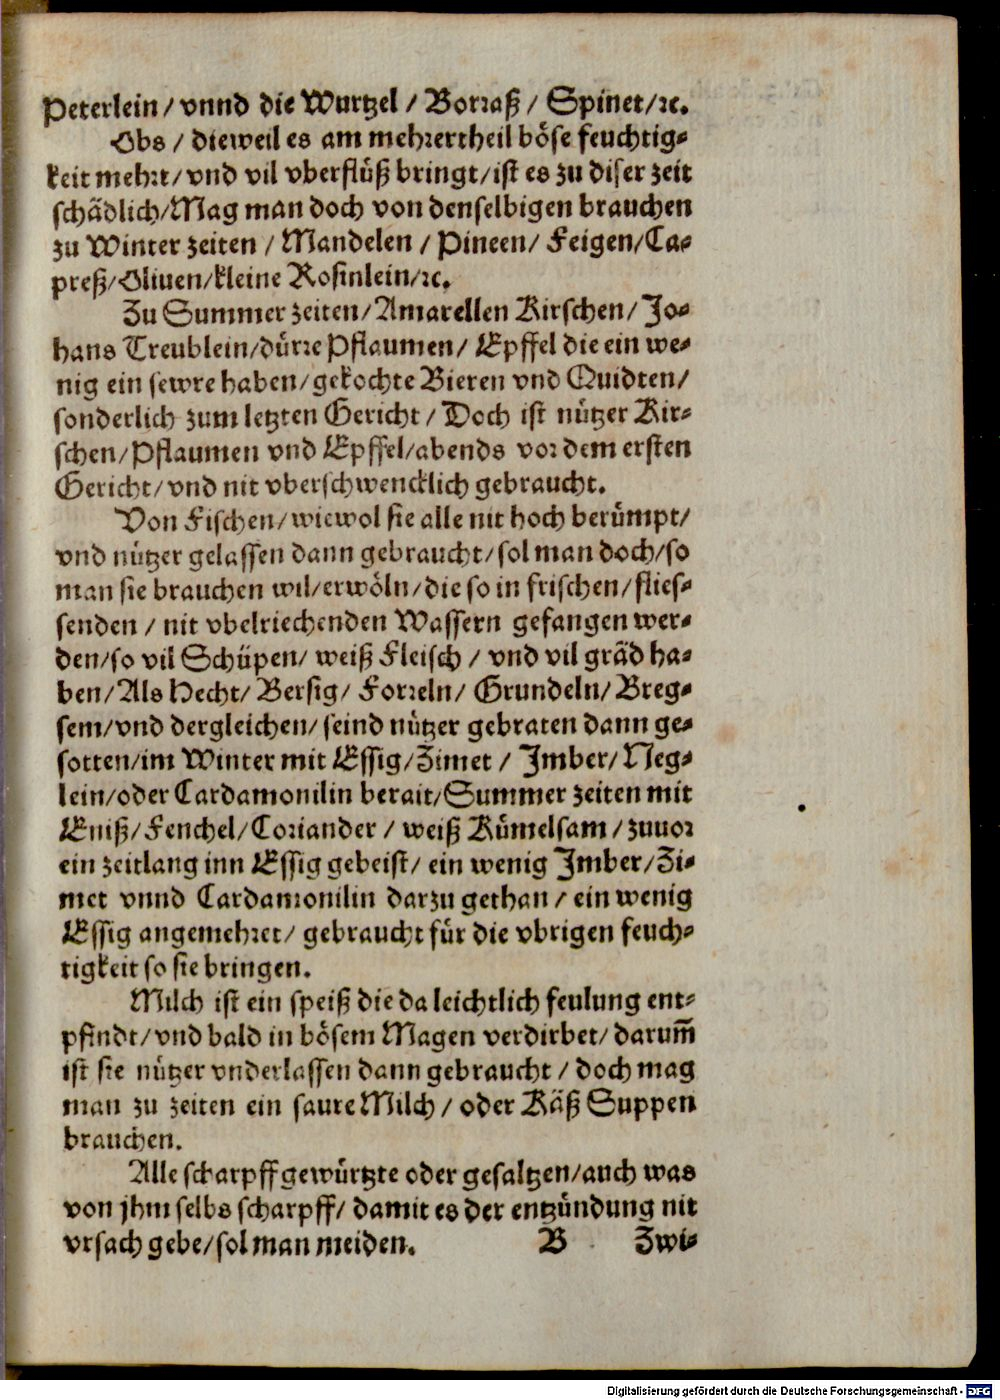 Peterlein / vnnd die Wurtzel / Borraß / Spinet / ꝛc.
Obs / dieweil es am mehrertheil böse feuchtig⸗
keit mehrt / vnd vil vberflüß bringt / ist es zu diser zeit
schädlich / Mag man doch von denselbigen brauchen
zu Winter zeiten / Mandelen / Pineen / Feigen / Ca⸗
preß / Oliuen / kleine Rosinlein / ꝛc.
Zu Summer zeiten / Amarellen Kirschen / Jo⸗
hans Treublein / dürre Pflaumen / Epffel die ein we⸗
nig ein sewre haben / gekochte Bieren vnd Quidten /
sonderlich zum letzten Gericht / Doch ist nützer Kir⸗
schen / Pflaumen vnd Epffel / abends vor dem ersten
Gericht / vnd nit vberschwencklich gebraucht.
Von Fischen / wiewol sie alle nit hoch berümpt /
vnd nützer gelassen dann gebraucht / sol man doch / so
man sie brauchen wil / erwöln / die so in frischen / flies⸗
senden / nit vbelriechenden Wassern gefangen wer⸗
den / so vil Schüpen / weiß Fleisch / vnd vil gräd ha⸗
ben / Als Hecht / Bersig / Forreln / Grundeln / Breg⸗
sem / vnd dergleichen / seind nützer gebraten dann ge⸗
sotten / im Winter mit Essig / Zimet / Imber / Neg⸗
lein / oder Cardamonilin berait / Summer zeiten mit
Eniß / Fenchel / Coriander / weiß Kümelsam / zuuor
ein zeitlang inn Essig gebeist / ein wenig Imber / Zi⸗
met vnnd Cardamonilin darzu gethan / ein wenig
Essig angemehret / gebraucht für die vbrigen feuch⸗
tigkeit so sie bringen.
Milch ist ein speiß die da leichtlich feulung ent⸗
pfindt / vnd bald in bösem Magen verdirbet / darum̃
ist sie nützer vnderlassen dann gebraucht / doch mag
man zu zeiten ein saure Milch / oder Käß Suppen
brauchen.
Alle scharpff gewürtzte oder gesaltzen / auch was
von jhm selbs scharpff / damit es der entzündung nit
vrsach gebe / sol man meiden. B Zwi⸗
Digitalisierung gefördert durch die Deutsche Forschungsgemeinschaft - DFG